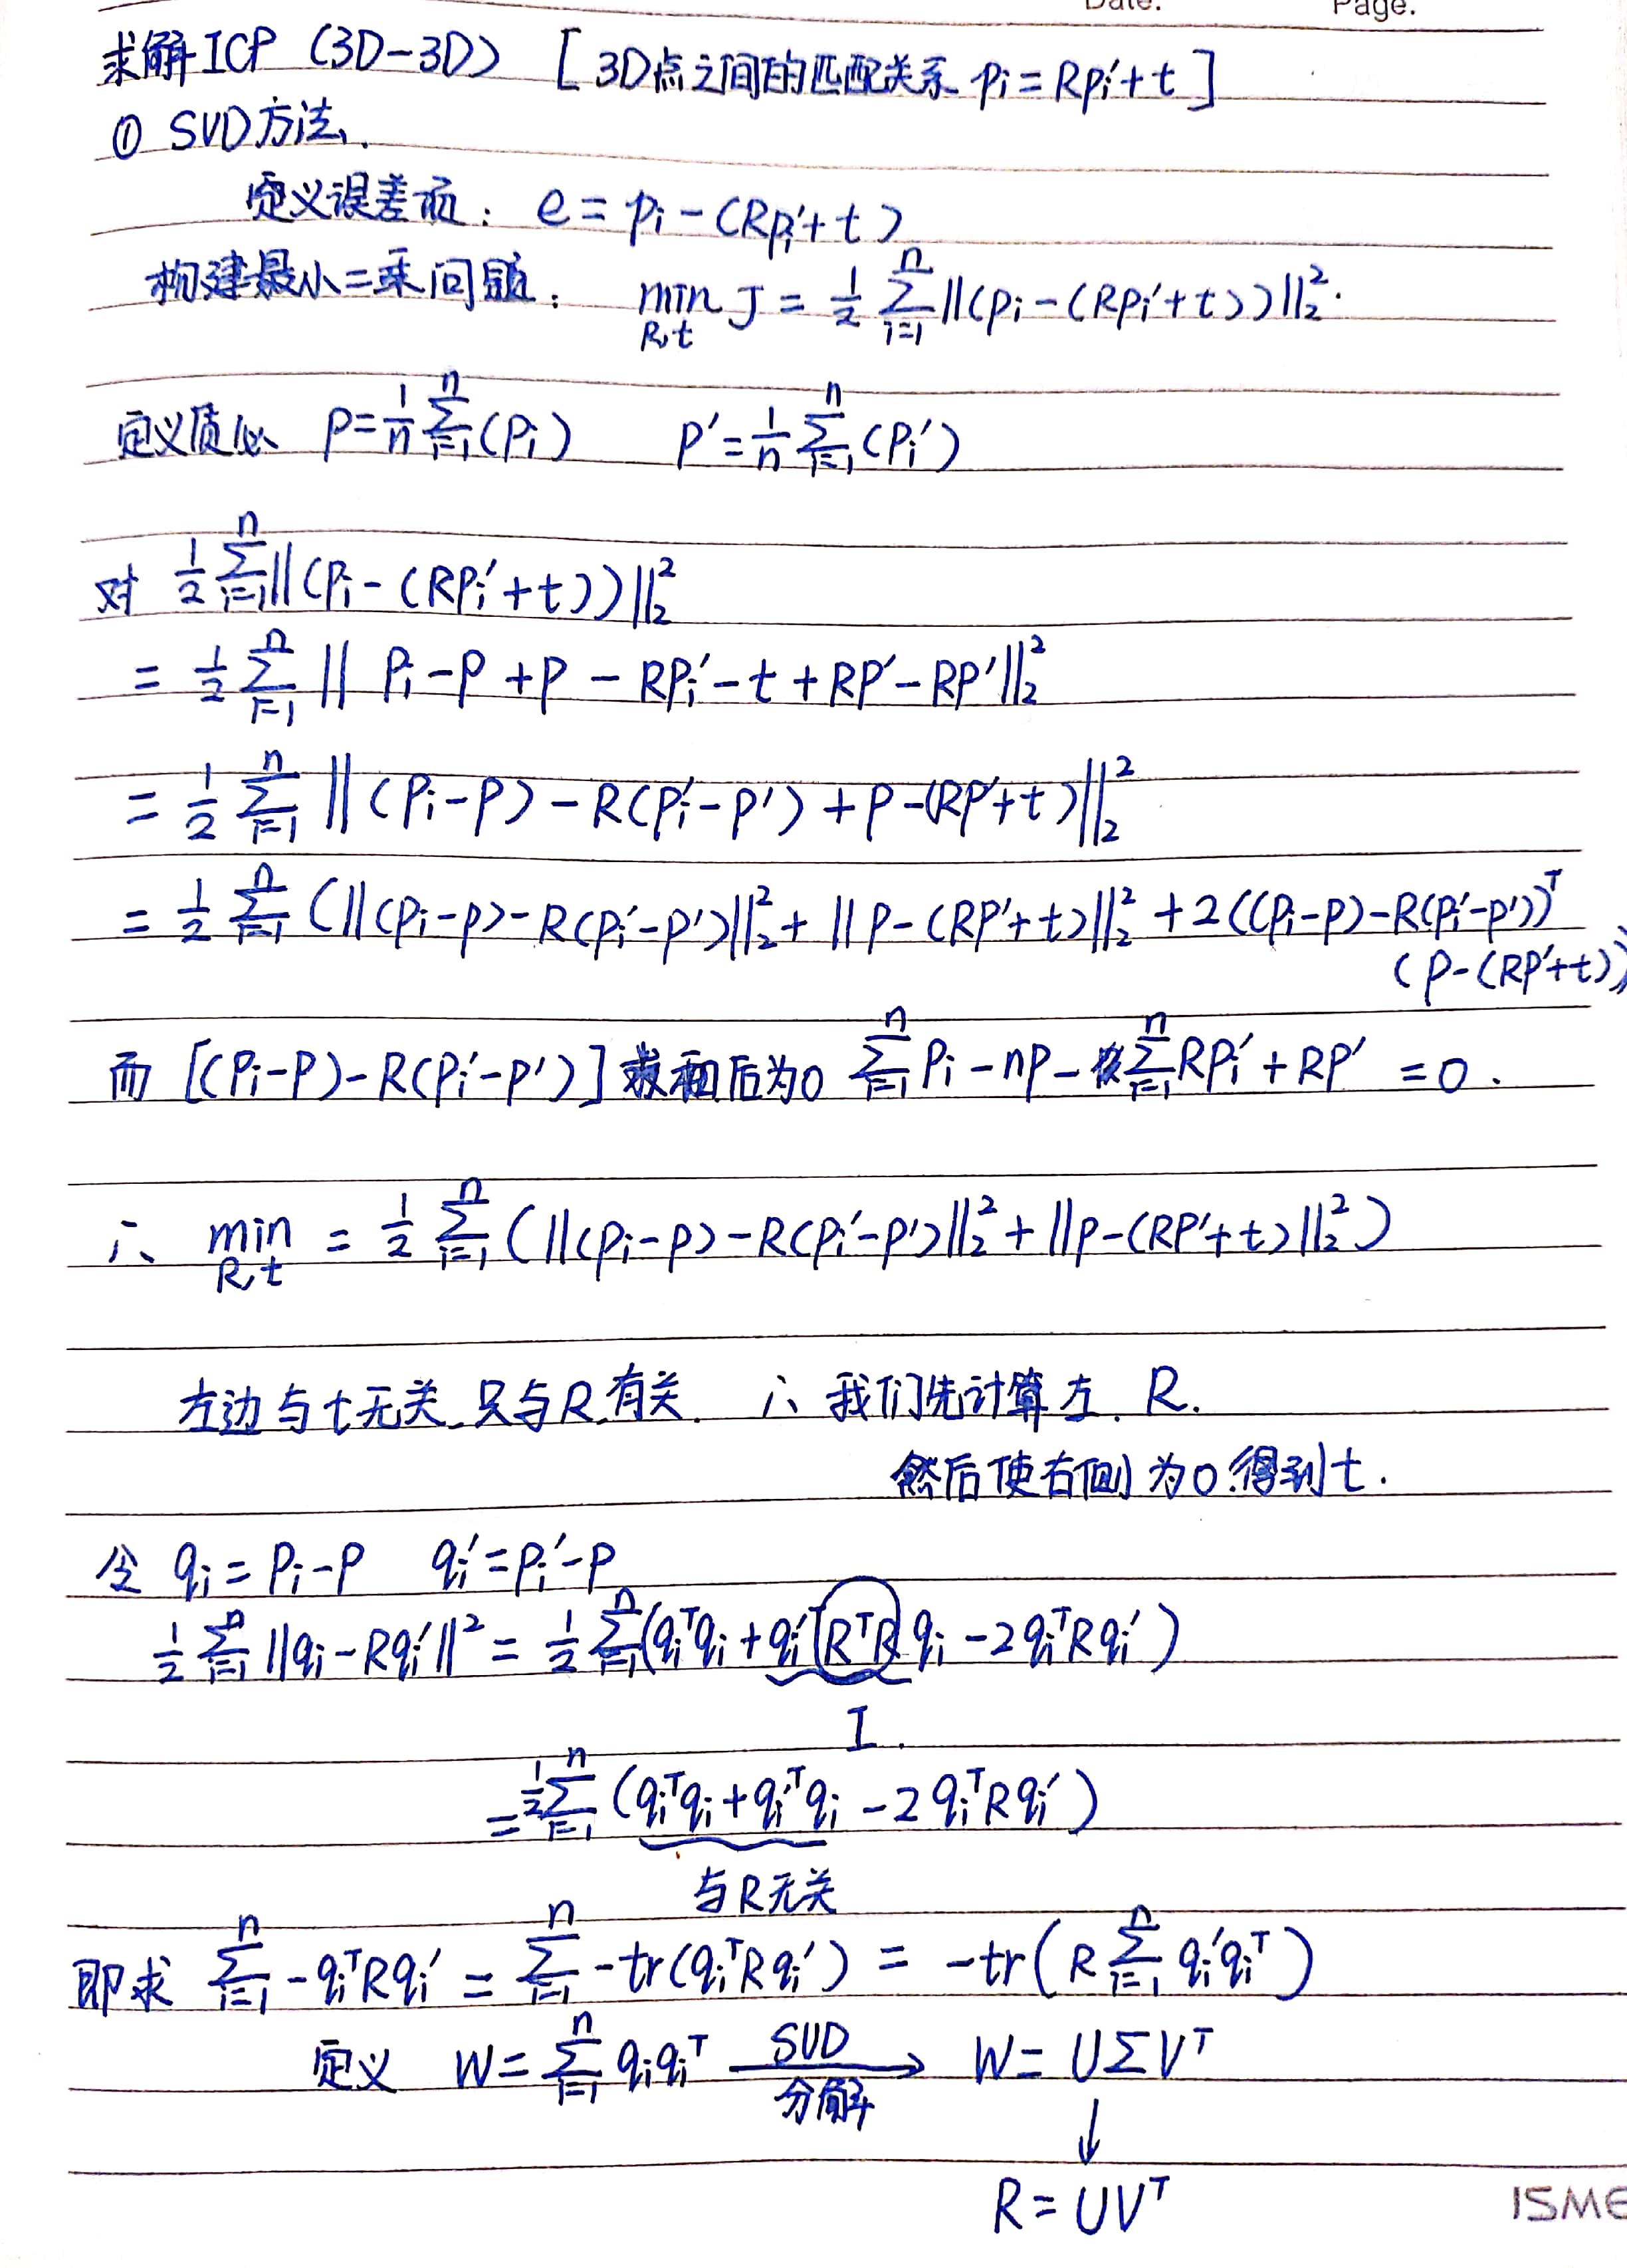 Date. Page.
求解ICP (3D-3D) [3D点之间的匹配关系 pi = Rpi'+t]
① SVD方法.
定义误差项: e = pi - (Rpi'+t)
构建最小二乘问题: min R,t J = 1/2 Σ_{i=1}^n ||(pi - (Rpi'+t))||₂².
定义质心 P = 1/n Σ_{i=1}^n (Pi) P' = 1/n Σ_{i=1}^n (Pi')
对 1/2 Σ_{i=1}^n ||(Pi - (RPi'+t))||₂²
= 1/2 Σ_{i=1}^n || Pi - P + P - RPi' - t + RP' - RP'||₂²
= 1/2 Σ_{i=1}^n ||(Pi-P) - R(Pi'-P') + P - (RP'+t)||₂²
= 1/2 Σ_{i=1}^n (||(Pi-P) - R(Pi'-P')||₂² + ||P - (RP'+t)||₂² + 2((Pi-P) - R(Pi'-P'))ᵀ
(P - (RP'+t)))
而 [(Pi-P) - R(Pi'-P')] 求和后为0 Σ_{i=1}^n Pi - nP - Σ_{i=1}^n RPi' + RP' = 0.
∴ min R,t = 1/2 Σ_{i=1}^n (||(Pi-P) - R(Pi'-P')||₂² + ||P - (RP'+t)||₂²)
左边与t无关 只与R有关. ∴ 我们先计算左. R.
然后使右侧为0.得到t.
令 qi = Pi - P qi' = Pi' - P
1/2 Σ_{i=1}^n ||qi - Rqi'||² = 1/2 Σ_{i=1}^n (qiᵀqi + qi'ᵀRᵀR qi - 2qiᵀRqi')
I.
= 1/2 Σ_{i=1}^n (qiᵀqi + qi'ᵀqi - 2qiᵀRqi')
与R无关
即求 Σ_{i=1}^n -qiᵀRqi' = Σ_{i=1}^n -tr(qiᵀRqi') = -tr(R Σ_{i=1}^n qi'qiᵀ)
定义 W = Σ_{i=1}^n qiqiᵀ SVD分解 → W = UΣVᵀ
↓
R = UVᵀ